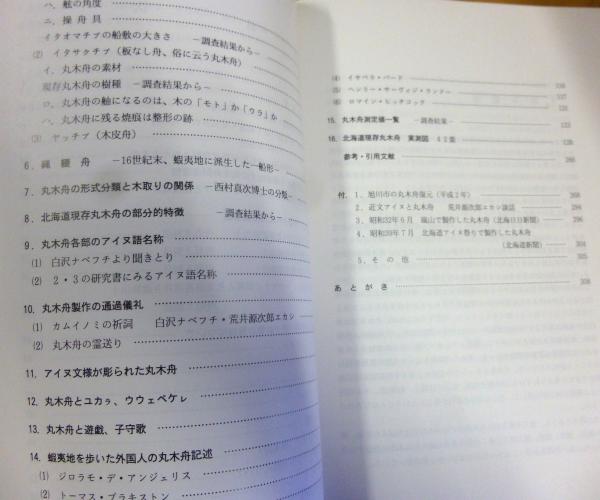 ハ. 舷の角度
ニ. 操舟具
イタオマチプの船敷の大きさ －調査結果から－
(2) イタサクチプ（板なし舟、俗に云う丸木舟）
イ. 丸木舟の素材
現存丸木舟の樹種 －調査結果から－
ロ. 丸木舟の舳になるのは、木の「モト」か「ウラ」か
ハ. 丸木舟に残る焼痕は整形の跡
(3) ヤッチプ（木皮舟）
6. 縄綴舟 －16世紀末、蝦夷地に派生した一船形－
7. 丸木舟の形式分類と木取りの関係 －西村真次博士の分類－
8. 北海道現存丸木舟の部分的特徴 －調査結果から－
9. 丸木舟各部のアイヌ語名称
(1) 白沢ナベフチより聞きとり
(2) 2・3の研究書にみるアイヌ語名称
10. 丸木舟製作の通過儀礼
(1) カムイノミの祈詞 白沢ナベフチ・荒井源次郎エカシ
(2) 丸木舟の霊送り
11. アイヌ文様が彫られた丸木舟
12. 丸木舟とユカㇻ、ウウェペケㇾ
13. 丸木舟と遊戯、子守歌
14. 蝦夷地を歩いた外国人の丸木舟記述
(1) ジロラモ・デ・アンジェリス
(2) トーマス・ブラキストン
(4) イサベラ・バード
(5) ヘンリー・サーヴィジ・ランドー
(6) ロマイン・ヒッチコック
15. 丸木舟測定値一覧 －調査結果－
16. 北海道現存丸木舟 実測図 42葉
参考・引用文献
付. 1. 旭川市の丸木舟復元（平成2年） 268
2. 近文アイヌと丸木舟 荒井源次郎エカシ談話 294
3. 昭和32年6月 嵐山で製作した丸木舟（北海日日新聞） 296
4. 昭和39年7月 北海道アイヌ祭りで製作した丸木舟
（北海道新聞） 304
5. その他 305
あとがき 308